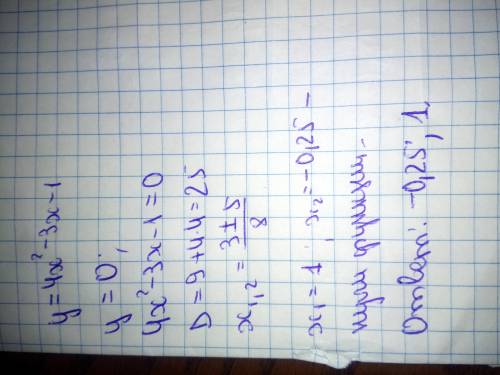 y = 4x² - 3x - 1
y = 0;
4x² - 3x - 1 = 0
D = 9 + 4·4 = 25
x₁,₂ = (3 ± 5)/8
x₁ = 1; x₂ = -0,25 -
нули функции.
Ответ: -0,25; 1.